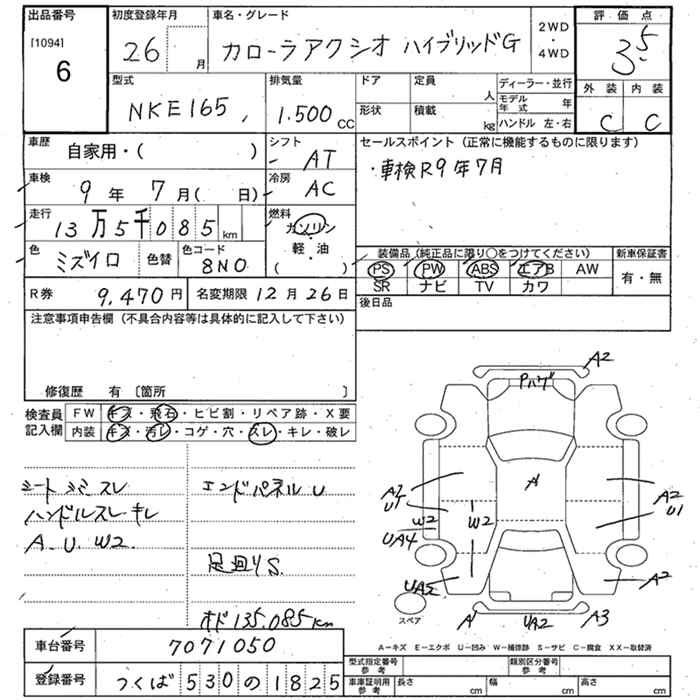 出品番号 初度登録年月 車名・グレード 2WD・4WD 評価点
[1094]
6 26 月 カローラアクシオ ハイブリッドG 3.5
型式 排気量 ドア 定員 人 ディーラー・並行 外装 内装
NKE165 1.500 cc 形状 積載 kg モデル年式 年 C C
ハンドル 左・右
車歴 自家用・( ) シフト AT セールスポイント (正常に機能するものに限ります)
車検 9年 7月( 日) 冷房 AC ・車検R9年7月
走行 13万5千085km 燃料 ガソリン・軽・油 ( )
色 ミズイロ 色替 色コード 8N0 装備品 (純正品に限り○をつけてください) 新車保証書
PS PW ABS エアB AW 有・無
SR ナビ TV カワ
R券 9,470円 名変期限 12月26日 後日品
注意事項申告欄 (不具合内容等は具体的に記入して下さい)
修復歴 有 〔箇所 〕
検査員記入欄 FW キズ・飛石・ヒビ割・リペア跡・X要
内装 キズ・汚レ・コゲ・穴・スレ・キレ・破レ
シートシミ スレ エンドパネルU
ハンドルスレ キレ
A.U.W2
足廻りS
オド135.085km
A2
Pハゲ
A
A2
U1
A2
U1
W2
W2
UA4
UA2
A2
A
UA2
A3
スペア
A−キズ E−エクボ U−凹み W−補修跡 S−サビ C−腐食 XX−取替済
車台番号 7071050
型式指定番号 参考 類別区分番号 参考
登録番号 つくば530の1825
車庫証明用 参考 長さ cm 幅 cm 高さ cm